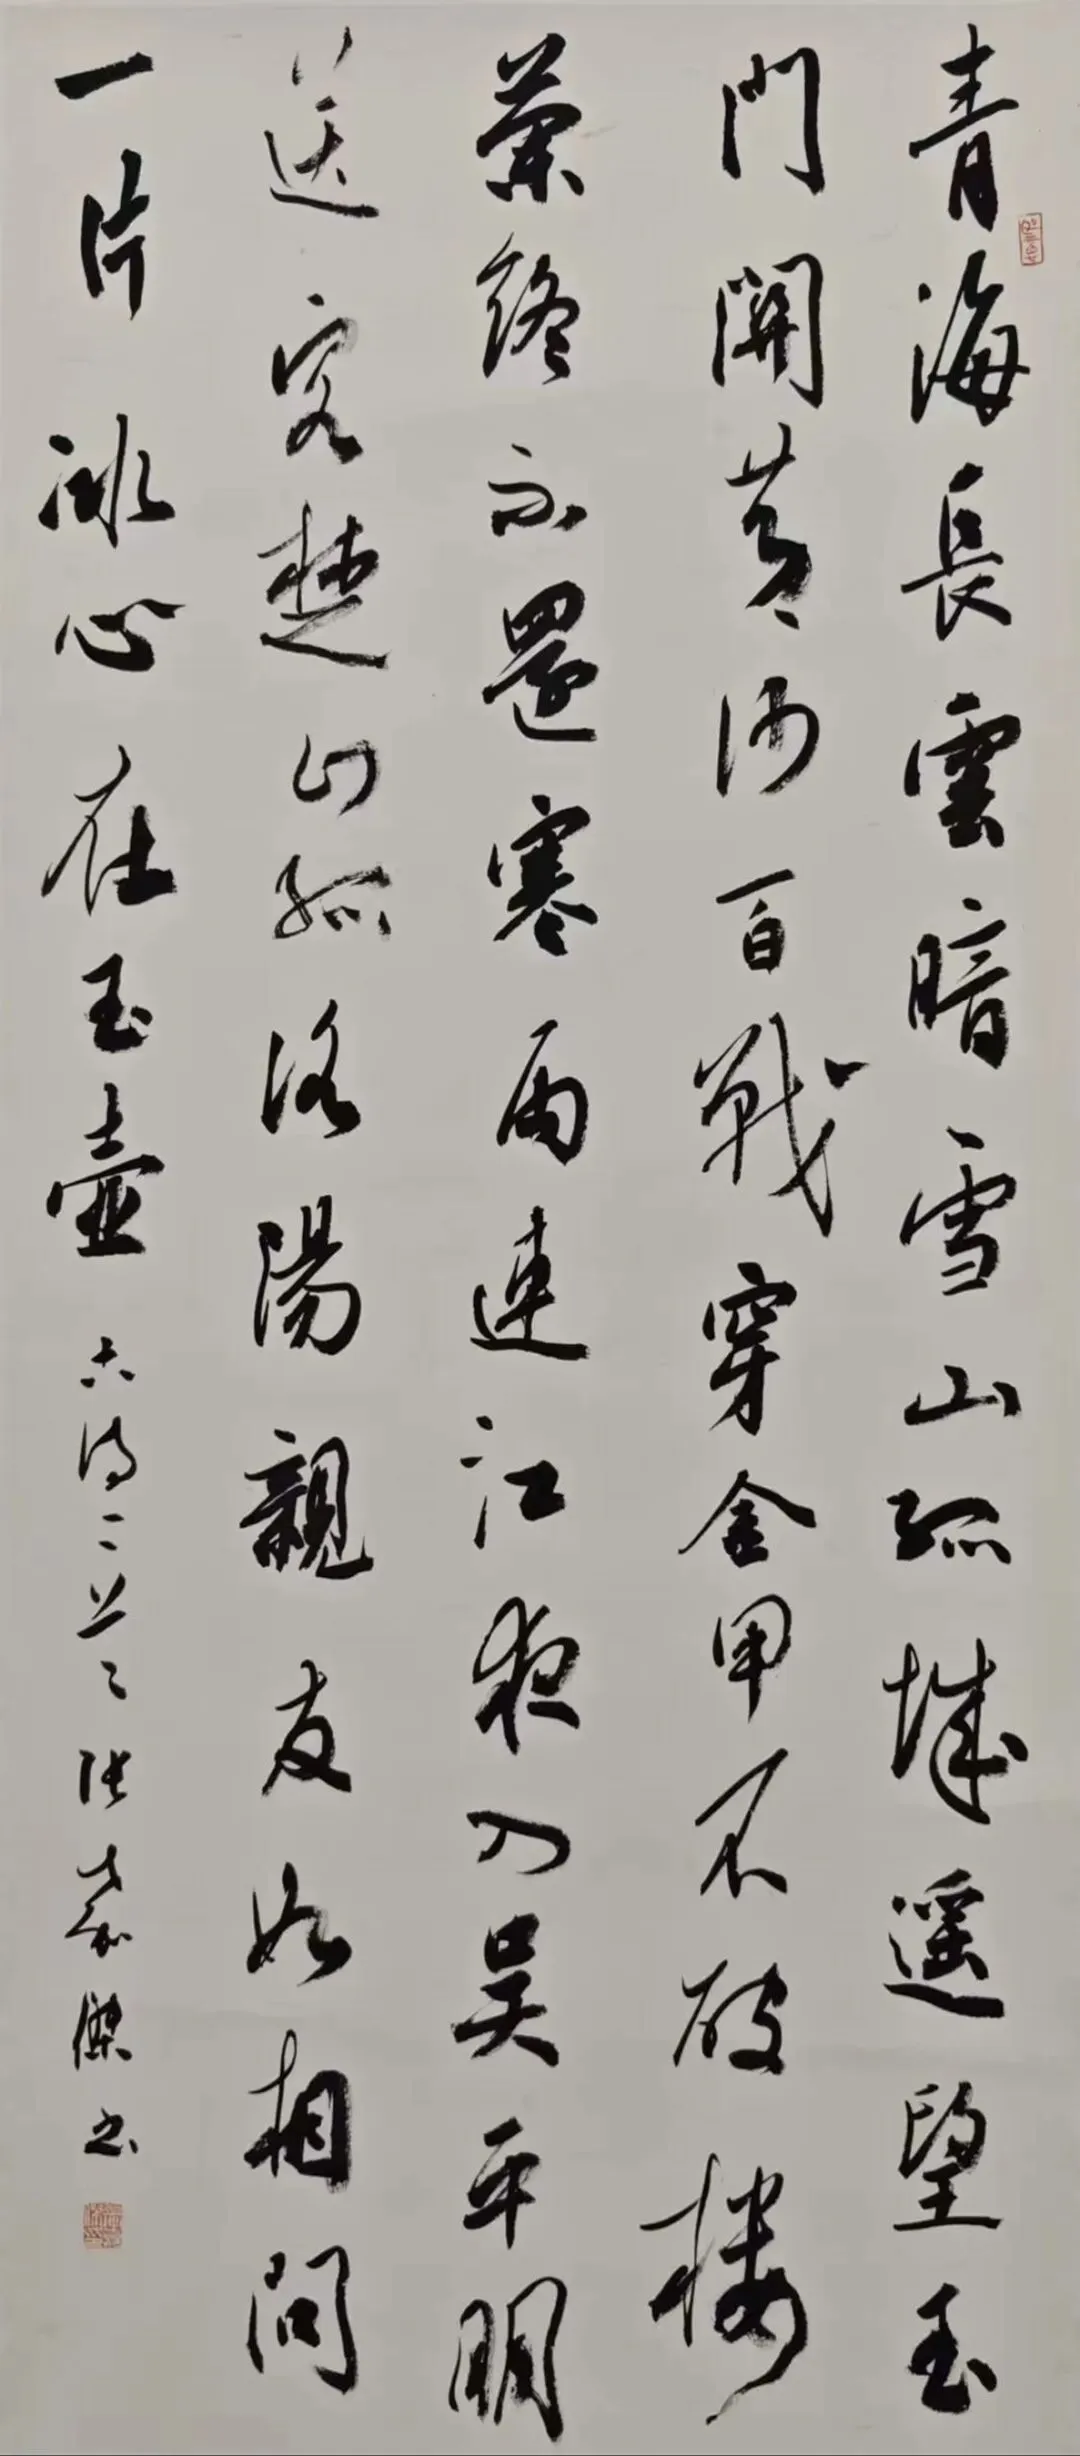 青海長雲暗雪山孤城遥望玉
門關黄沙百戰穿金甲不破樓
蘭終不還寒雨連江夜入吴平明
送客楚山孤洛陽親友如相問
一片冰心在玉壺 古詩二首 張嘉傑书